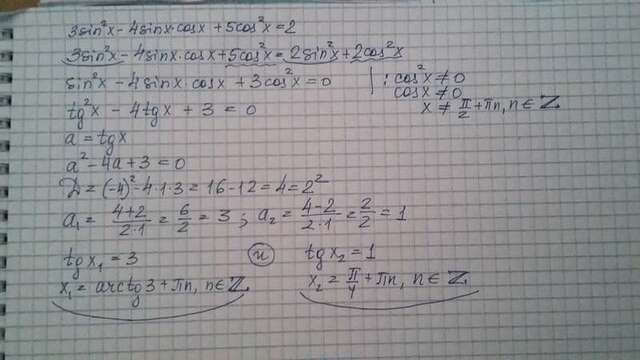 3sin²x - 4sinx·cosx + 5cos²x = 2
3sin²x - 4sinx·cosx + 5cos²x = 2sin²x + 2cos²x
sin²x - 4sinx·cosx + 3cos²x = 0 | : cos²x ≠ 0
cosx ≠ 0
tg²x - 4tgx + 3 = 0 x ≠ π/2 + πn, n ∈ Z
a = tgx
a² - 4a + 3 = 0
D = (-4)² - 4·1·3 = 16 - 12 = 4 = 2²
a₁ = (4+2)/(2·1) = 6/2 = 3 ; a₂ = (4-2)/(2·1) = 2/2 = 1
tgx₁ = 3 и tgx₂ = 1
x₁ = arctg3 + πn, n ∈ Z x₂ = π/4 + πn, n ∈ Z